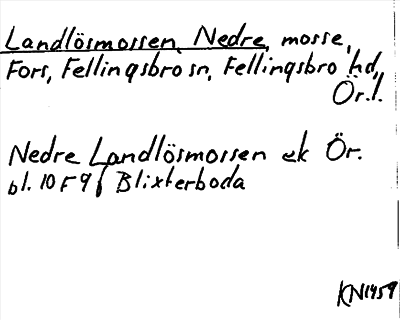 Landlösmossen, Nedre, mosse,
Fors, Fellingsbro sn, Fellingsbro hd,
Ör.l.
Nedre Landlösmossen ek Ör.
bl. 10 F 9 f Blixterboda
KN1959